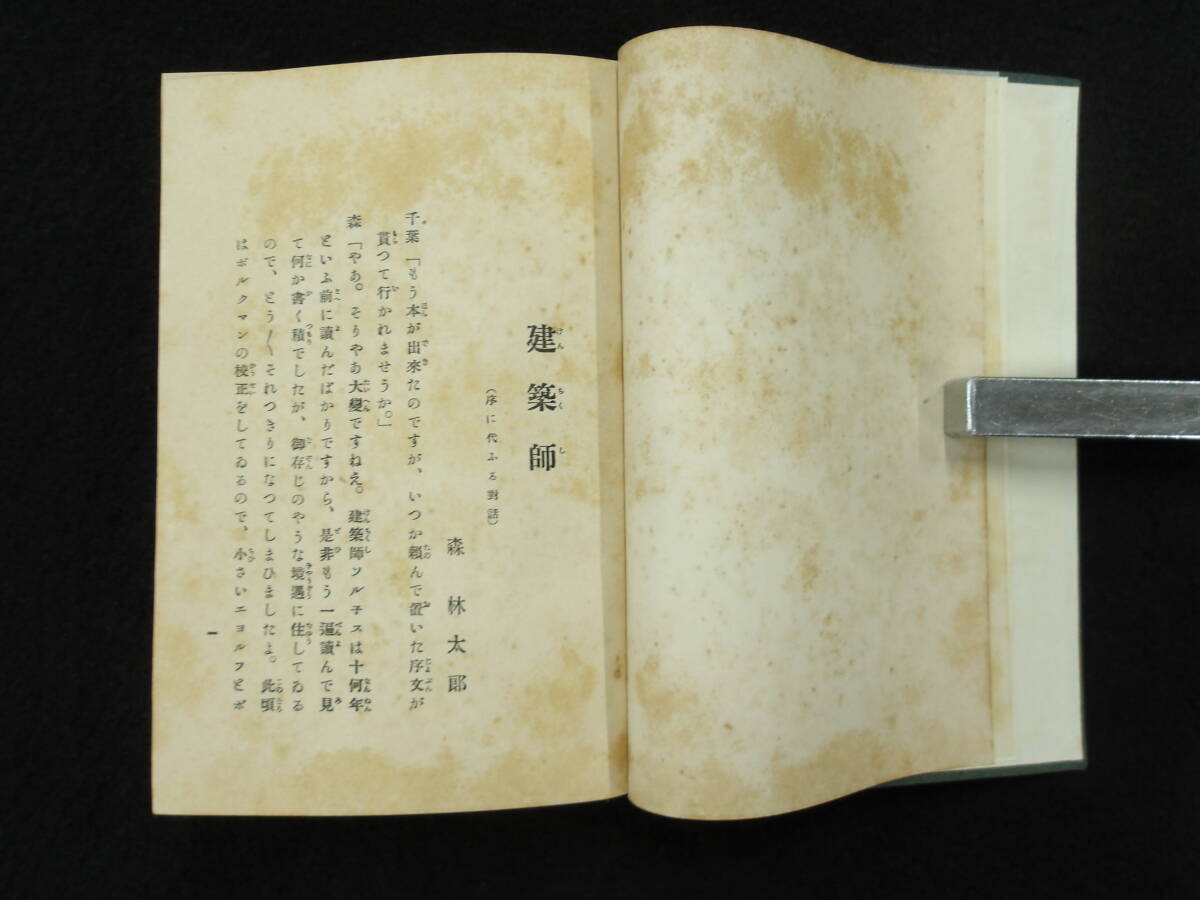 建築師
(序に代ふる對話)
森林太郎
千葉「もう本が出來たのですが、いつか賴んで置いた序文が
貰つて行かれませうか。」
森「やあ。そりやあ大變ですねえ。建築師ソルネスは十何年
といふ前に讀んだばかりですから、是非もう一遍讀んで見
て何か書く積でしたが、御存じのやうな境遇に住してゐる
ので、とう〳〵それつきりになつてしまひましたよ。此頃
はボルクマンの校正をしてゐるので、小さいエヨルフとボ
一